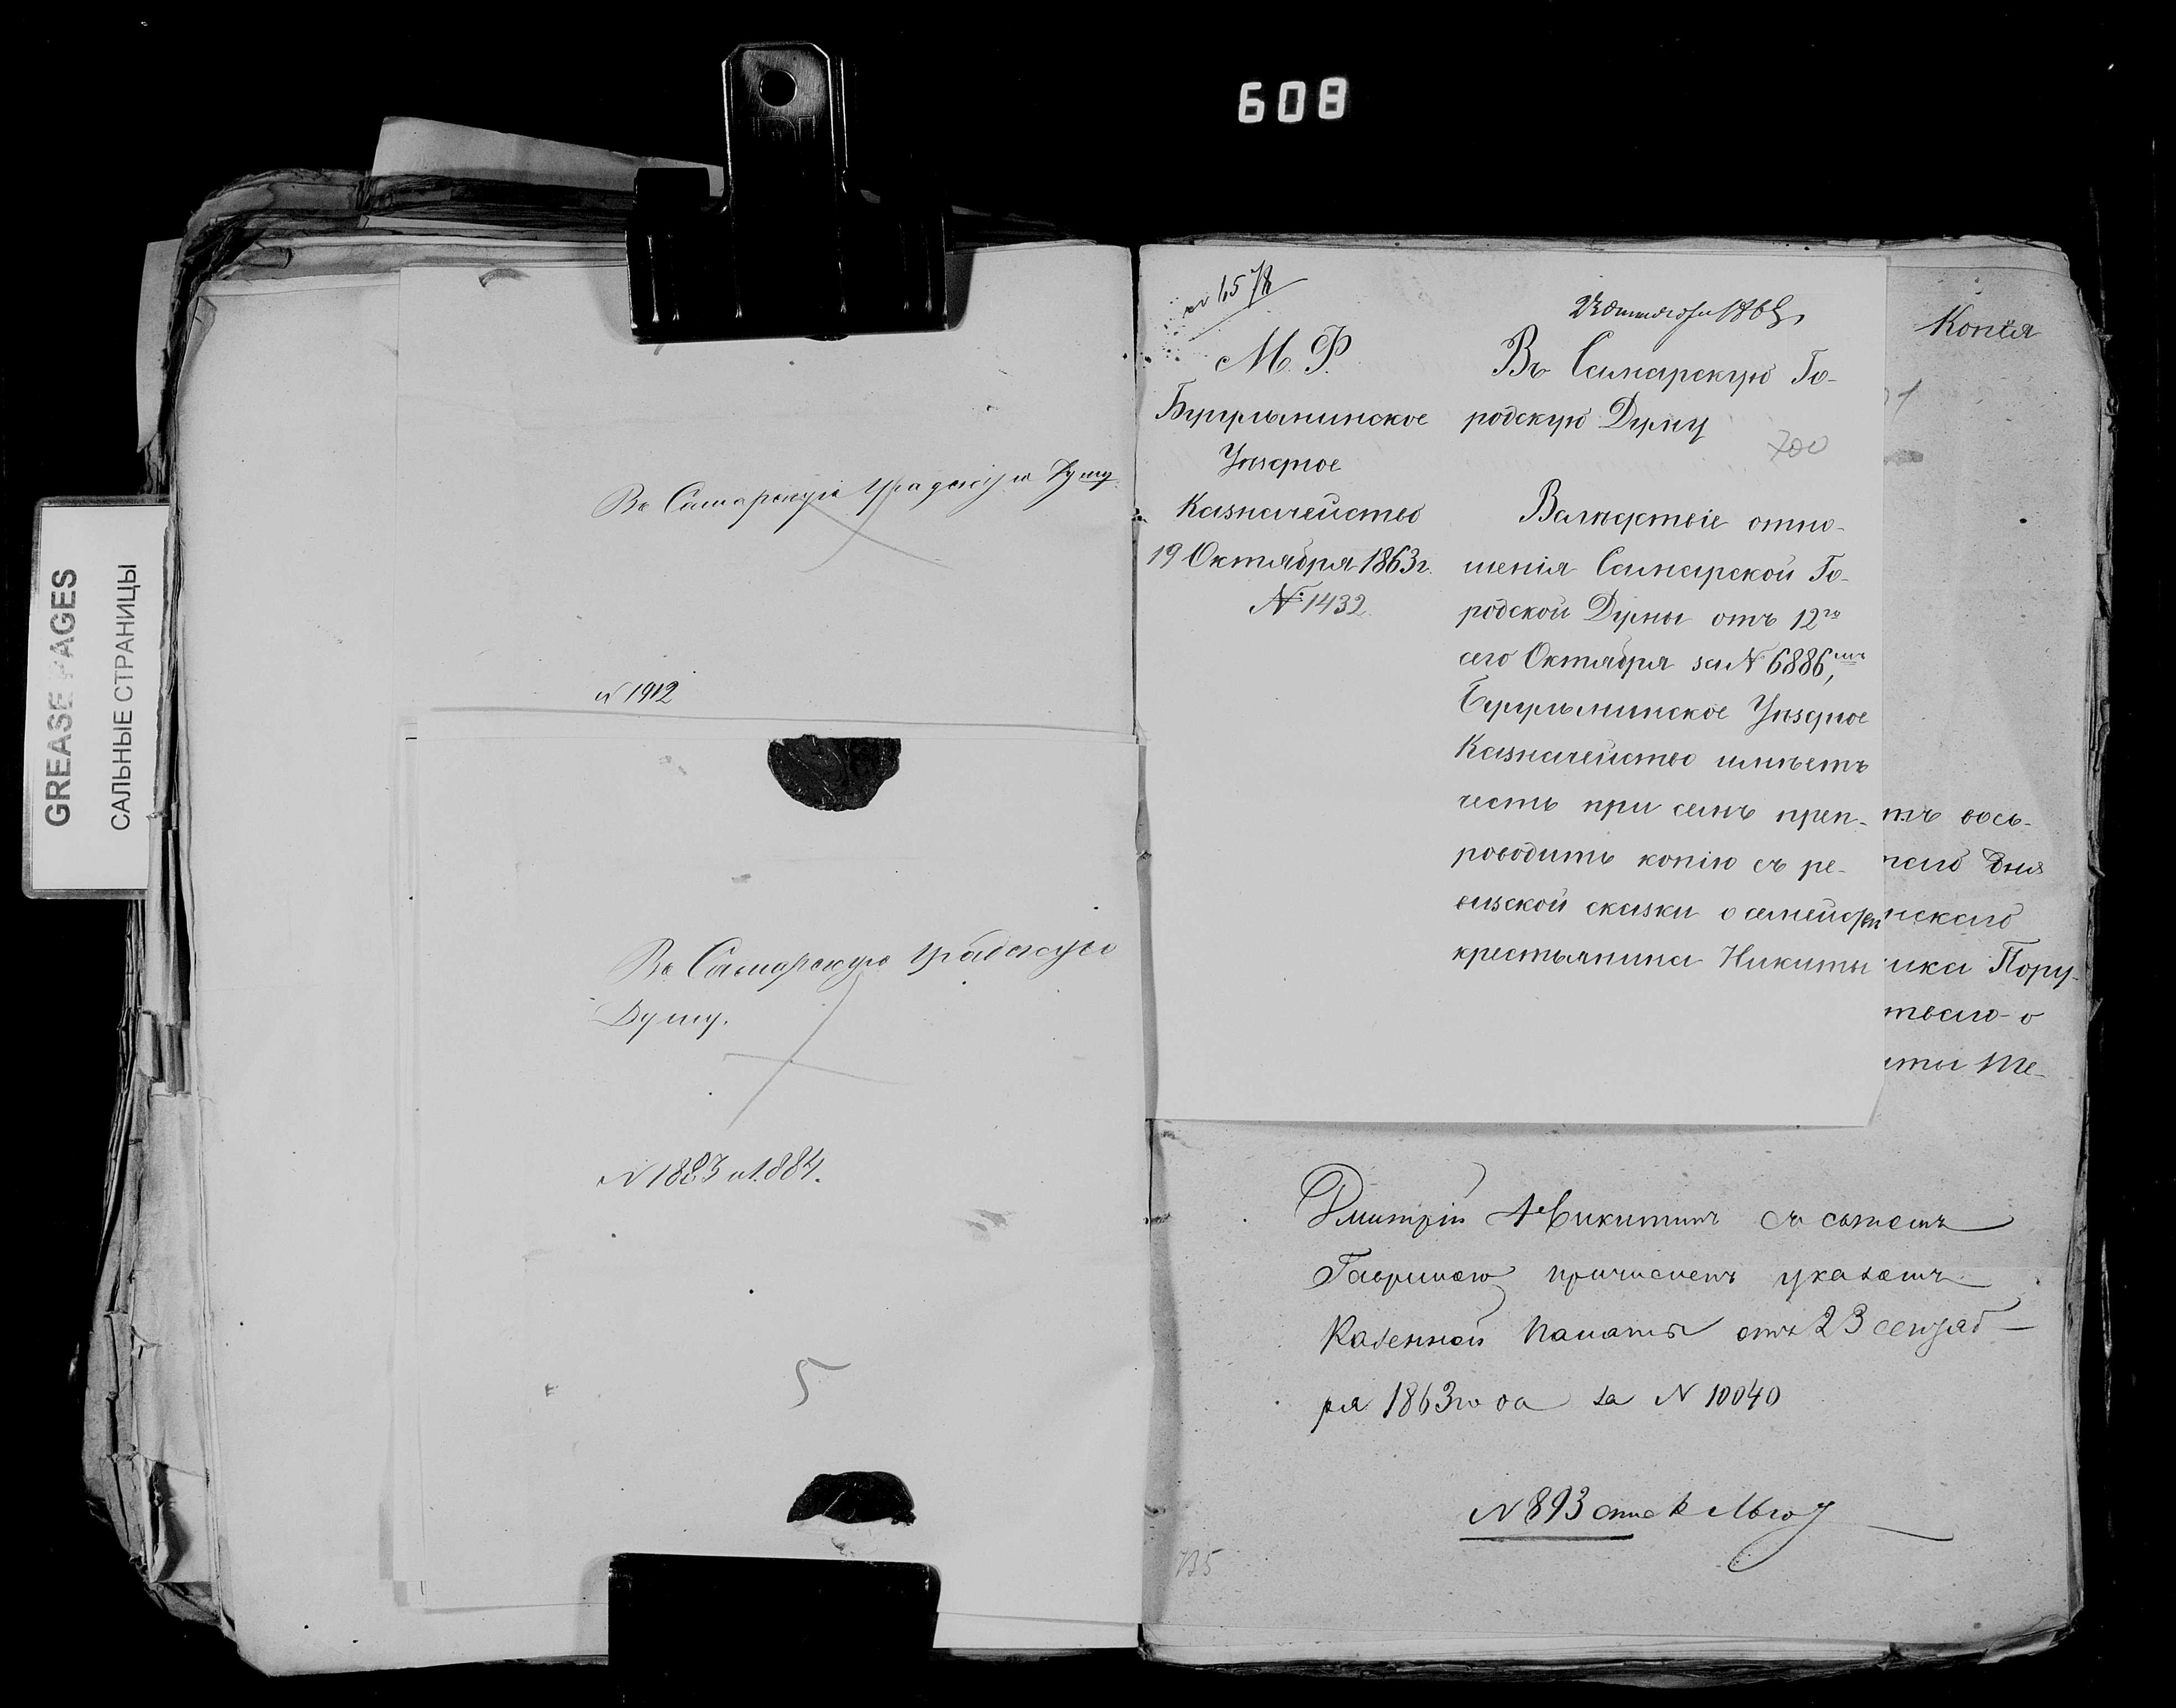 608
GREASE PAGES
САЛЬНЫЕ СТРАНИЦЫ
Въ Самарскую Градскую Думу
N 1912
Въ Самарскую Градскую
Думу.
N 1883 и 1884.
5
М. Ф.
Бугульминское
Уѣздное
Казначейство
19 Октября 1863 г.
№ 1432
Въ Самарскую Го-
родскую Думу
700
Вслѣдствіе отно-
шенія Самарской Го-
родской Думы отъ 12го
сего Октября за N 6886,
Бугульминское Уѣздное
Казначейство имѣетъ
честь при семъ преп-
роводить копію съ ре-
визской сказки о семействѣ
крестьянина Никиты
Копія
тъ вось-
Дня
нскаго
ика Пору-
о
иты Те-
Дмитрій Никитинъ съ сыномъ
Гавриломъ причисленъ указомъ
Казенной Палаты отъ 23 сентяб-
ря 1863 года за N 10040
N 893